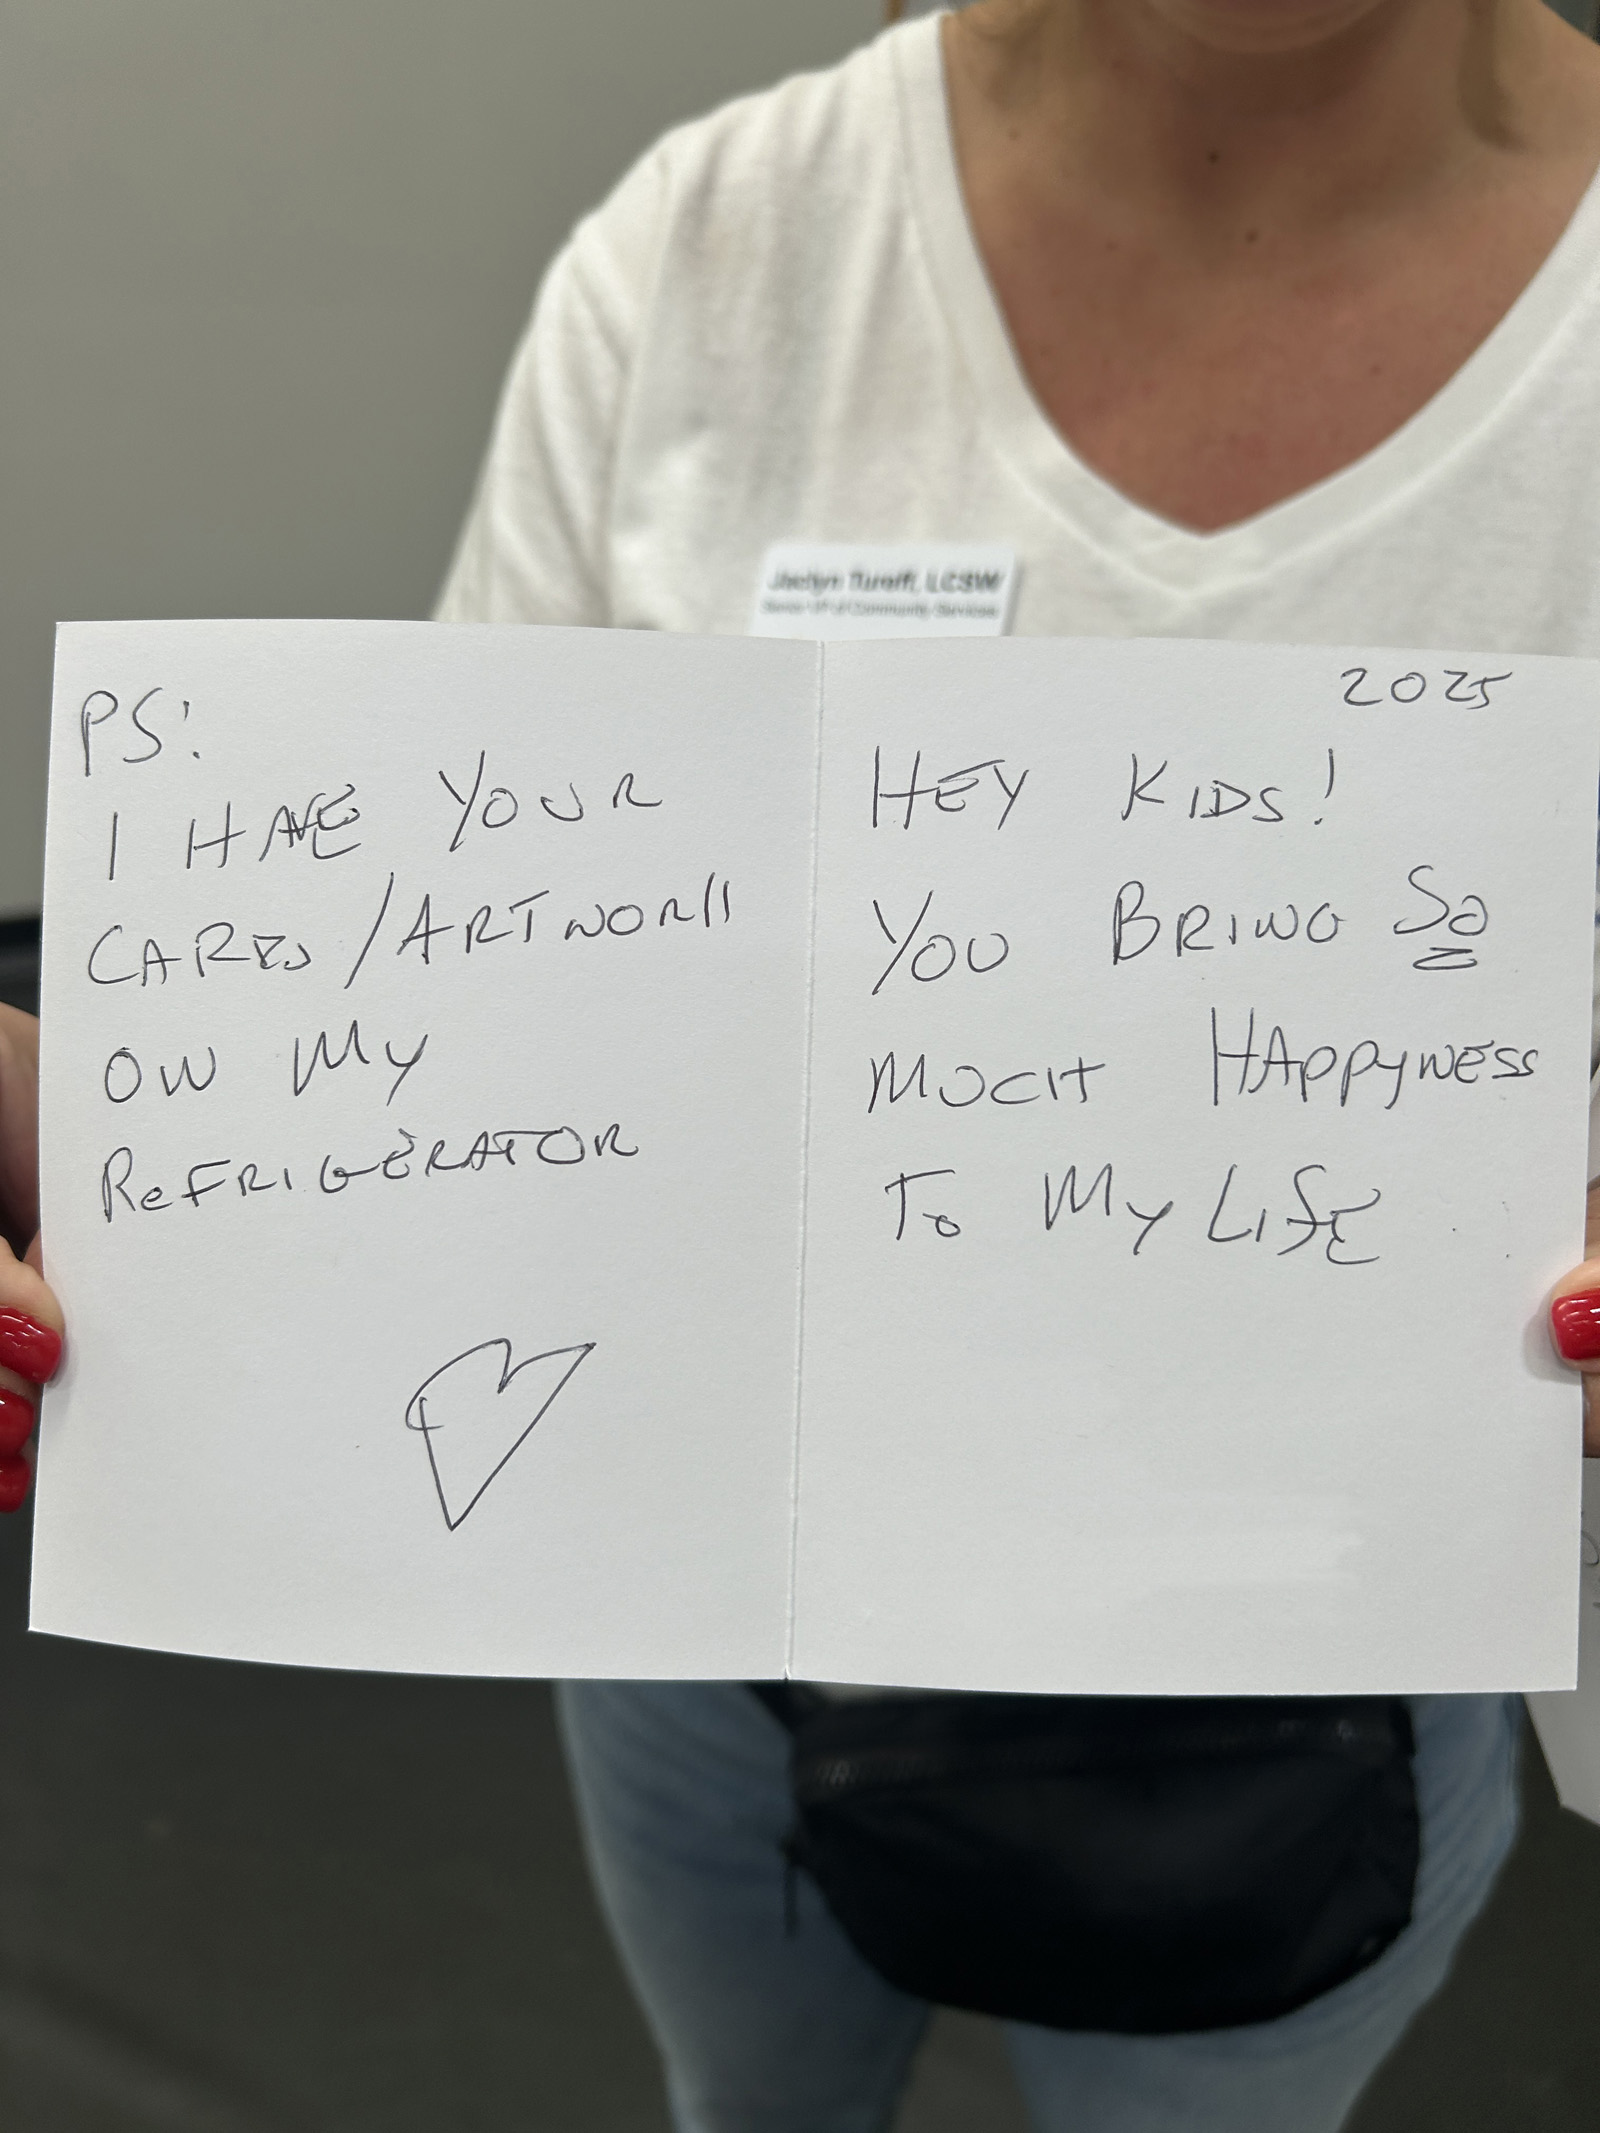 Jaclyn Turoff, LCSW
Senior VP of Community Services
PS:
I HAVE YOUR
CARDS/ARTWORK
ON MY
REFRIGERATOR
2025
HEY KIDS!
YOU BRING SO
MUCH HAPPYNESS
TO MY LIFE